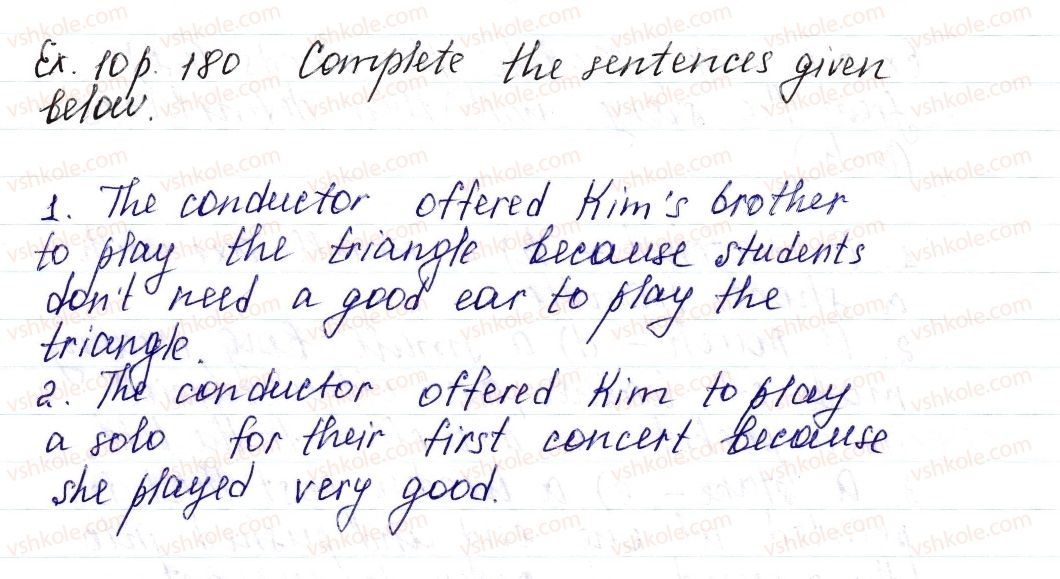 Ex. 10 p. 180 Complete the sentences given
below.
1. The conductor offered Kim's brother
to play the triangle because students
don't need a good ear to play the
triangle.
2. The conductor offered Kim to play
a solo for their first concert because
she played very good.